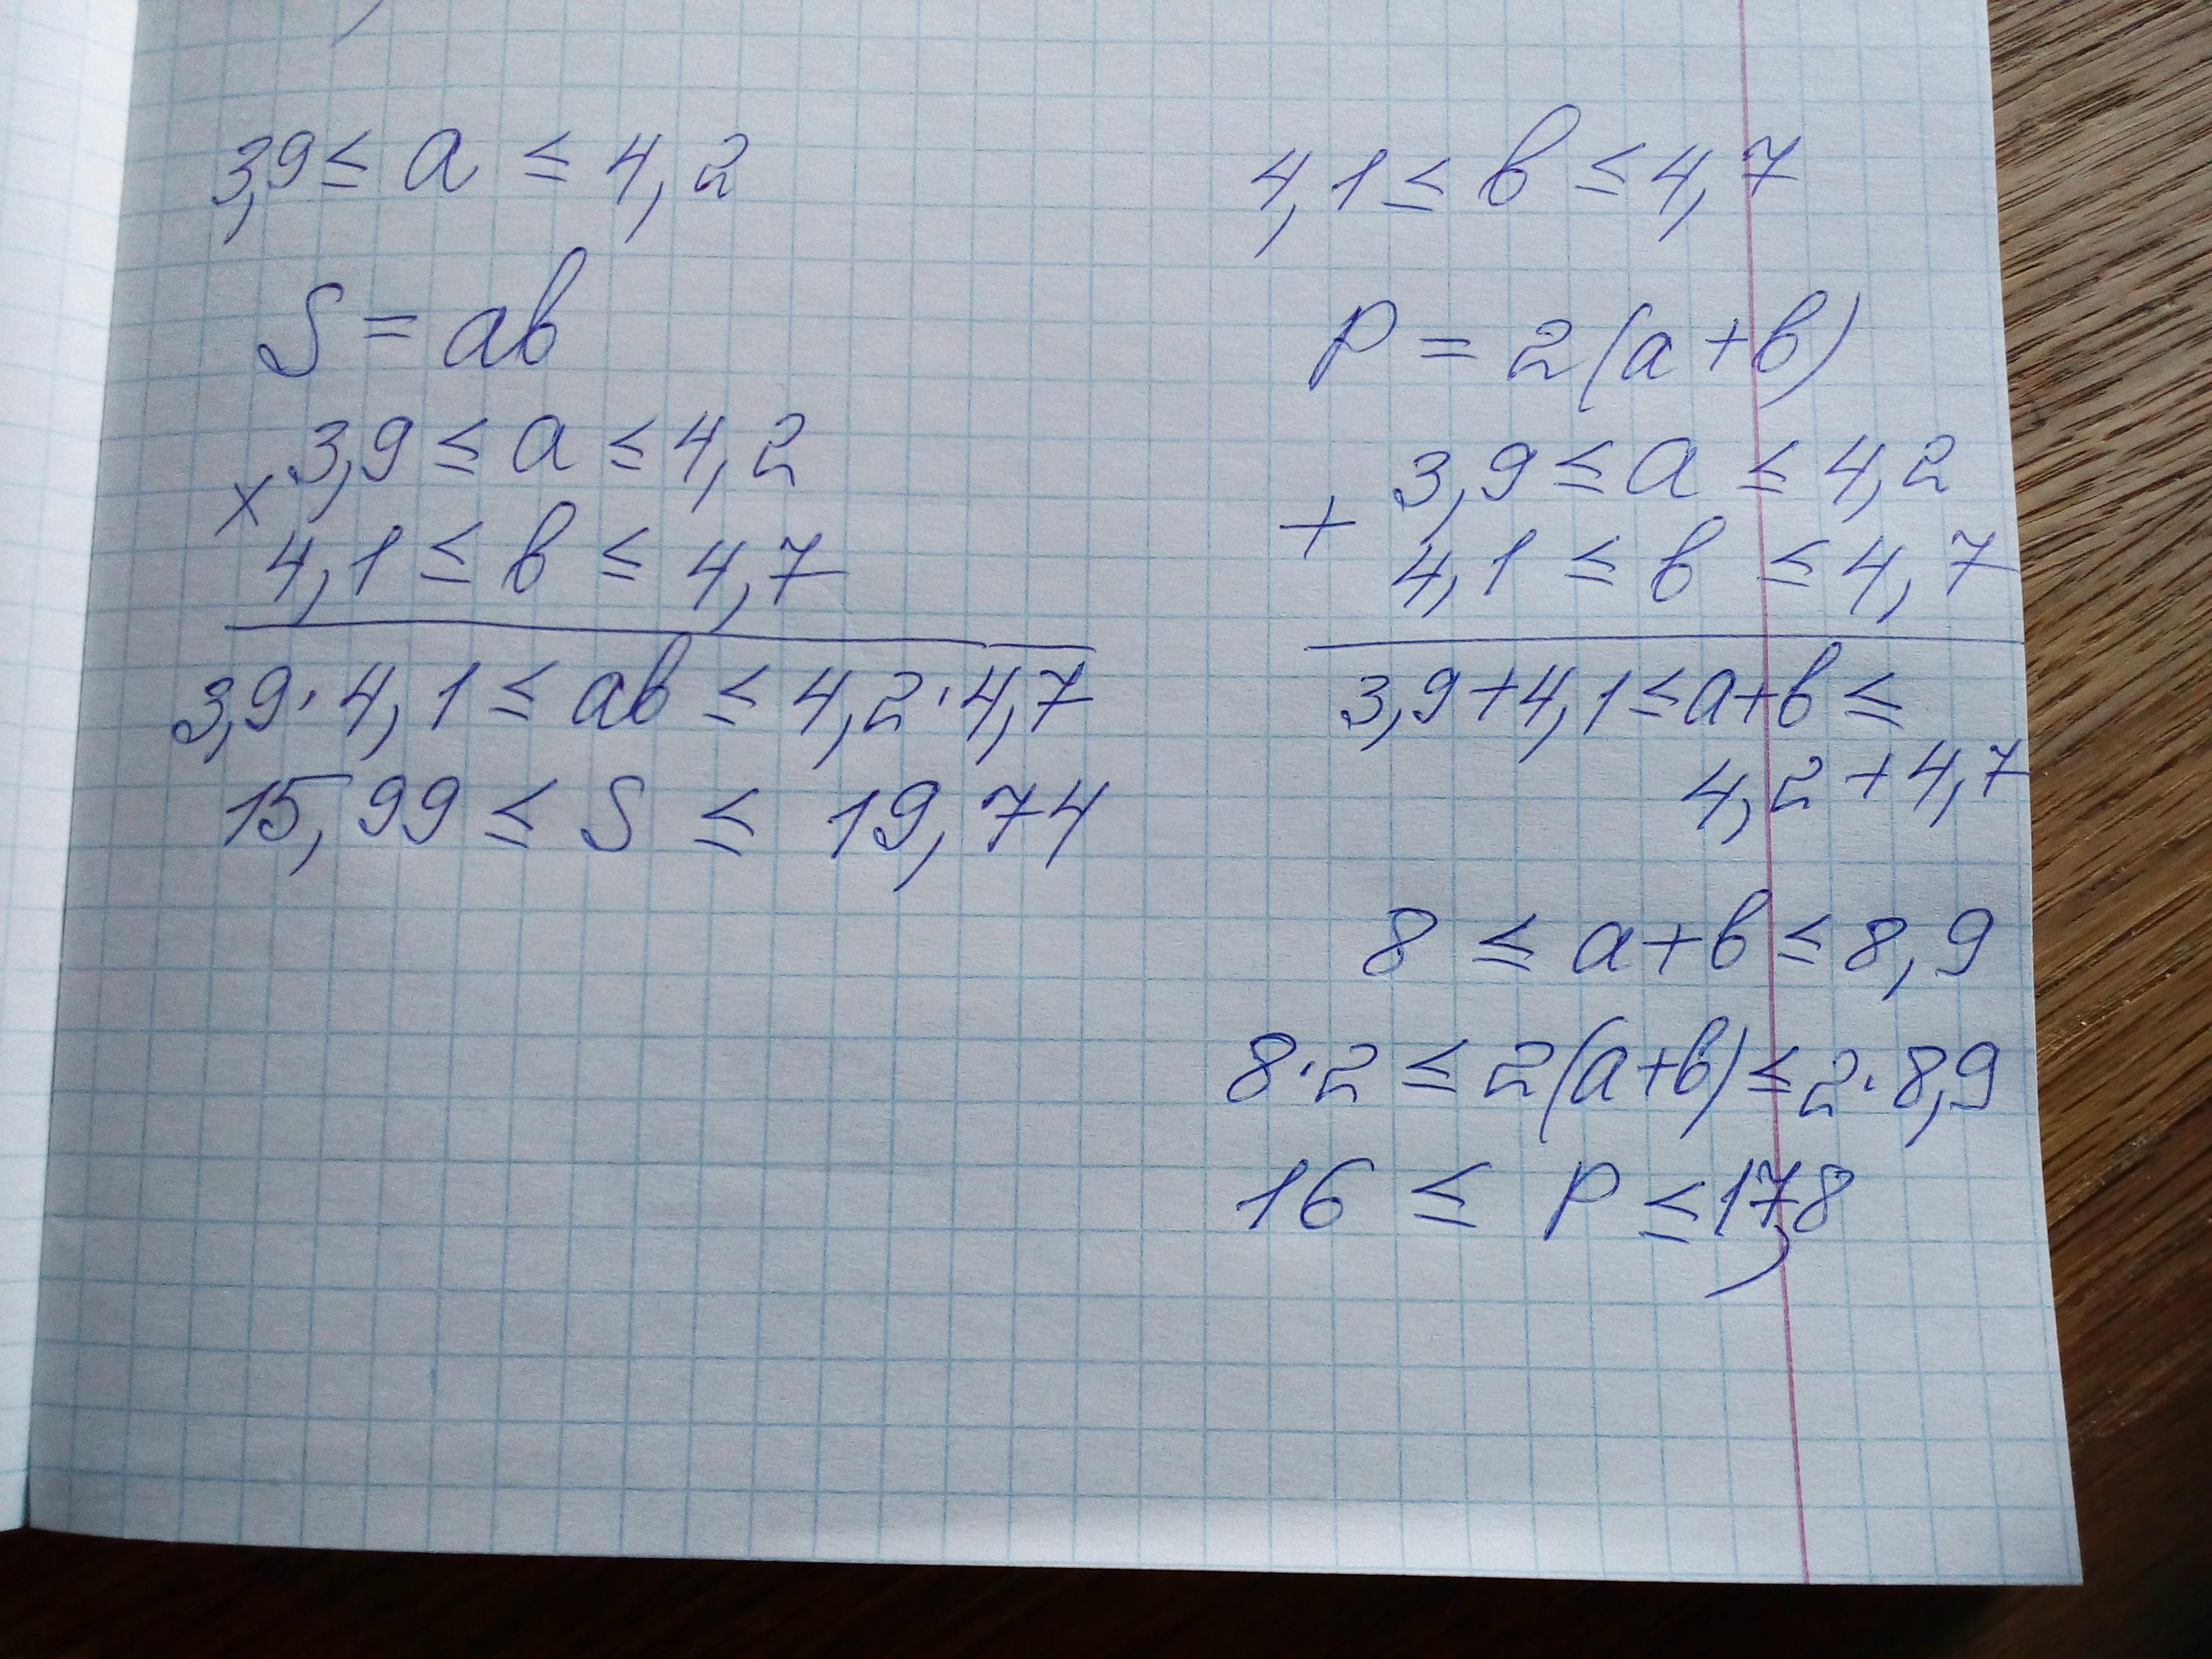 3,9 ≤ a ≤ 4,2
S = ab
× 3,9 ≤ a ≤ 4,2
4,1 ≤ b ≤ 4,7
3,9·4,1 ≤ ab ≤ 4,2·4,7
15,99 ≤ S ≤ 19,74
4,1 ≤ b ≤ 4,7
P = 2(a+b)
+ 3,9 ≤ a ≤ 4,2
4,1 ≤ b ≤ 4,7
3,9+4,1 ≤ a+b ≤
4,2+4,7
8 ≤ a+b ≤ 8,9
8·2 ≤ 2(a+b) ≤ 2·8,9
16 ≤ P ≤ 17,8